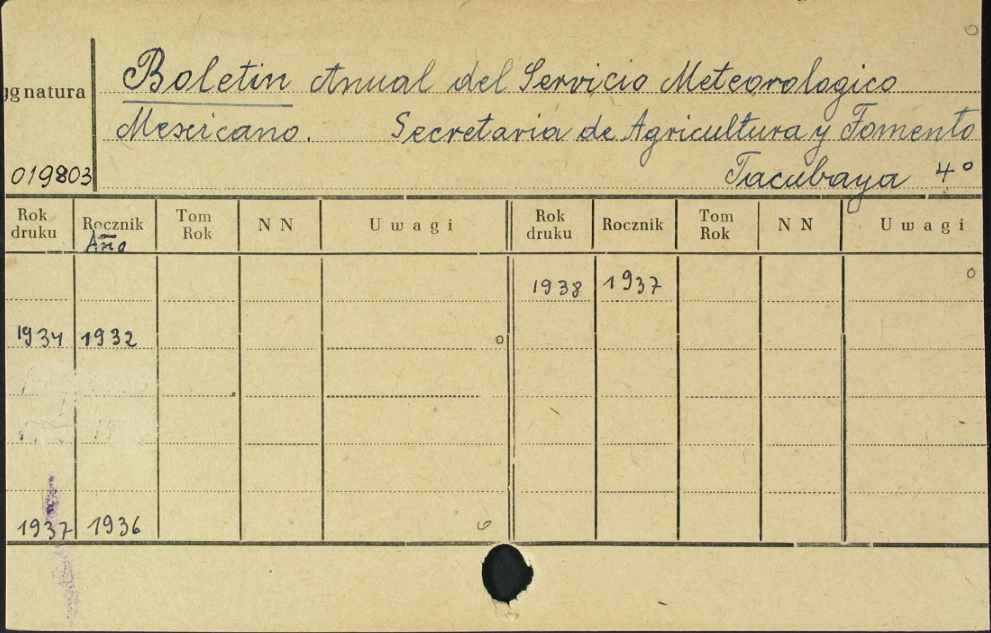 Boletin Anual del Servicio Meteorologico
Mexicano. Secretaria de Agricultura y Fomento
Tacubaya 4°
ygnatura
019803
Rok druku Rocznik Tom Rok NN Uwagi Rok druku Rocznik Tom Rok NN Uwagi
Año
1938 1937
1934 1932
1937 1936